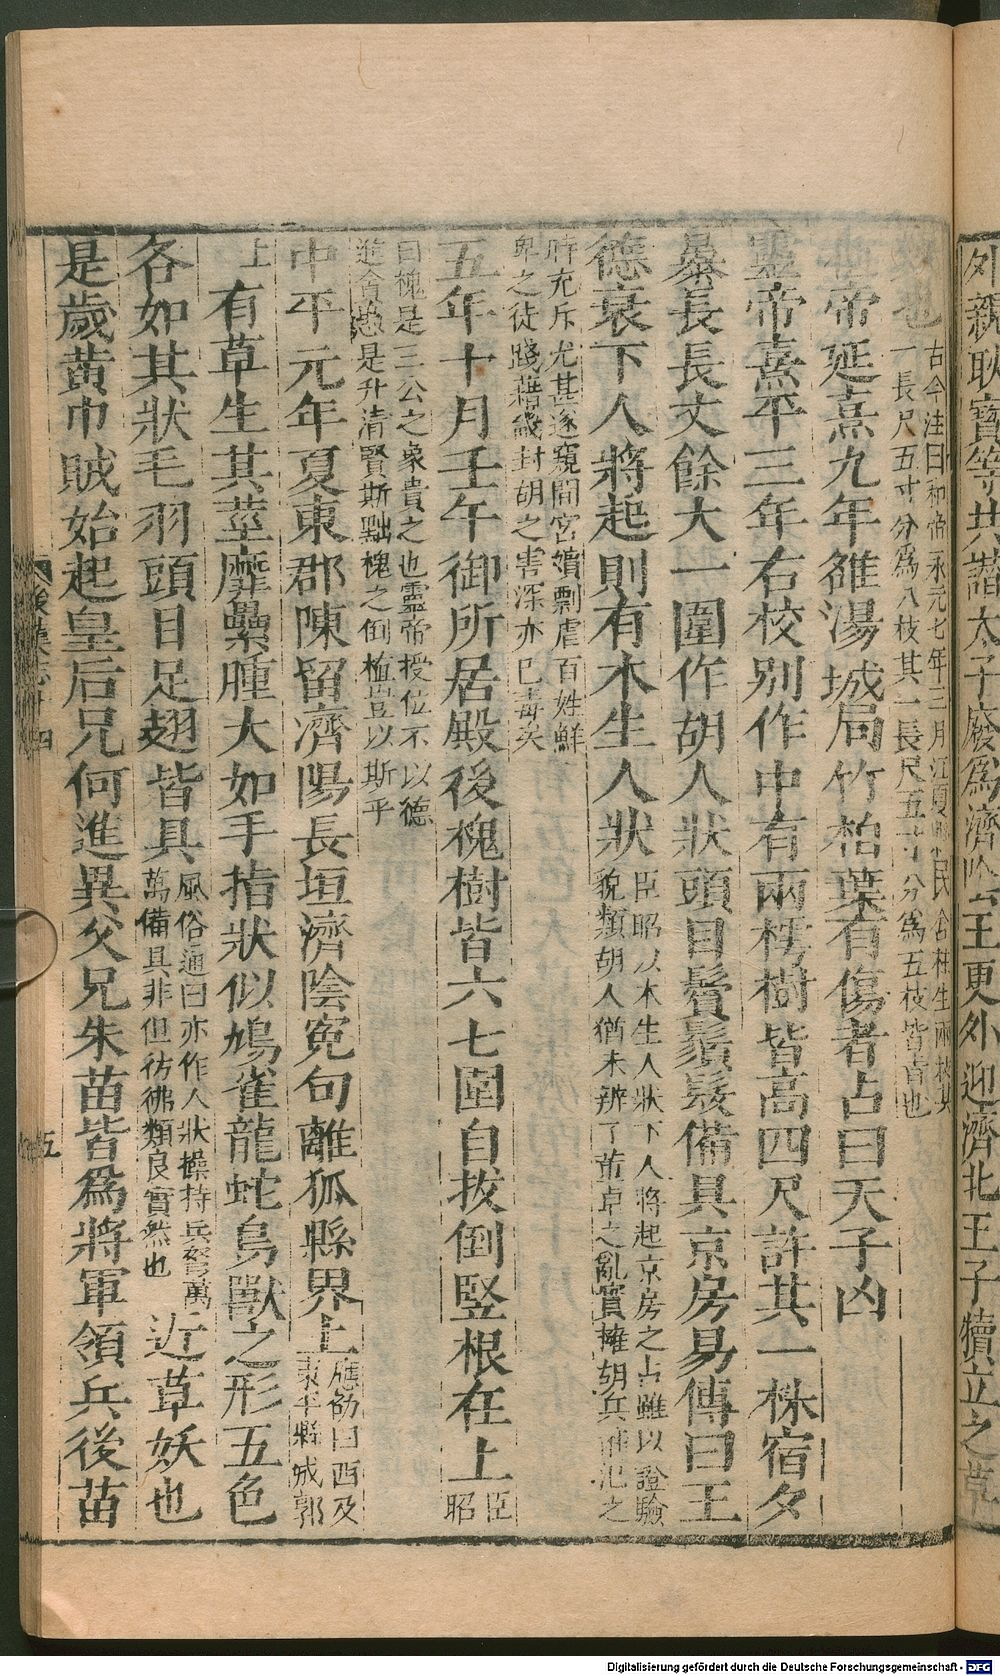 外親耿寶等共譖太子廢爲濟陰王更外迎濟北王子犢立之草
妖也
古今注曰和帝永元七年三月江夏縣民舍柱生兩枝其
一長尺五寸分爲八枝其一長尺五寸分爲五枝皆青也
帝延熹九年雒湯城局竹柏葉有傷者占曰天子凶
靈帝熹平三年右校別作中有兩樗樹皆高四尺許其一株宿夕
暴長長丈餘大一圍作胡人狀頭目鬢鬚髮備具京房易傳曰王
德衰下人將起則有木生人狀
臣昭以木生人狀下人將起京房之占雖以證驗
貌類胡人猶未辨了董卓之亂實擁胡兵
時充斥尤甚遂窺間宮嬪剽虐百姓鮮
卑之徒踐藉畿封胡之害深亦巳毒矣
五年十月壬午御所居殿後槐樹皆六七圍自拔倒竪根在上
臣
昭
曰槐是三公之象貴之也靈帝授位不以德
進貪愚是升清賢斯黜槐之倒植豈以斯乎
中平元年夏東郡陳留濟陽長垣濟陰寃句離狐縣界
應劭曰西及
城郭
上有草生其莖靡纍腫大如手指狀似鳩雀龍蛇鳥獸之形五色
各如其狀毛羽頭目足翅皆具
風俗通曰亦作人狀操持兵弩萬
萬備具非但彷彿類良實然也
近草妖也
是歲黄巾賊始起皇后兄何進異父兄朱苗皆爲將軍領兵後苗
後漢志十四
五
Digitalisierung gefördert durch die Deutsche Forschungsgemeinschaft - DFG